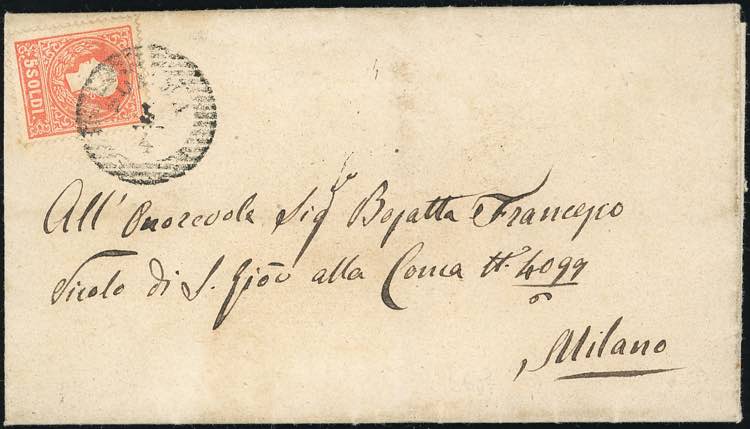 5 SOLDI.
4
All' Onorevole Sigr Bojatta Francesco
Vicolo di S. Giōv alla Conca N. 4099
Milano